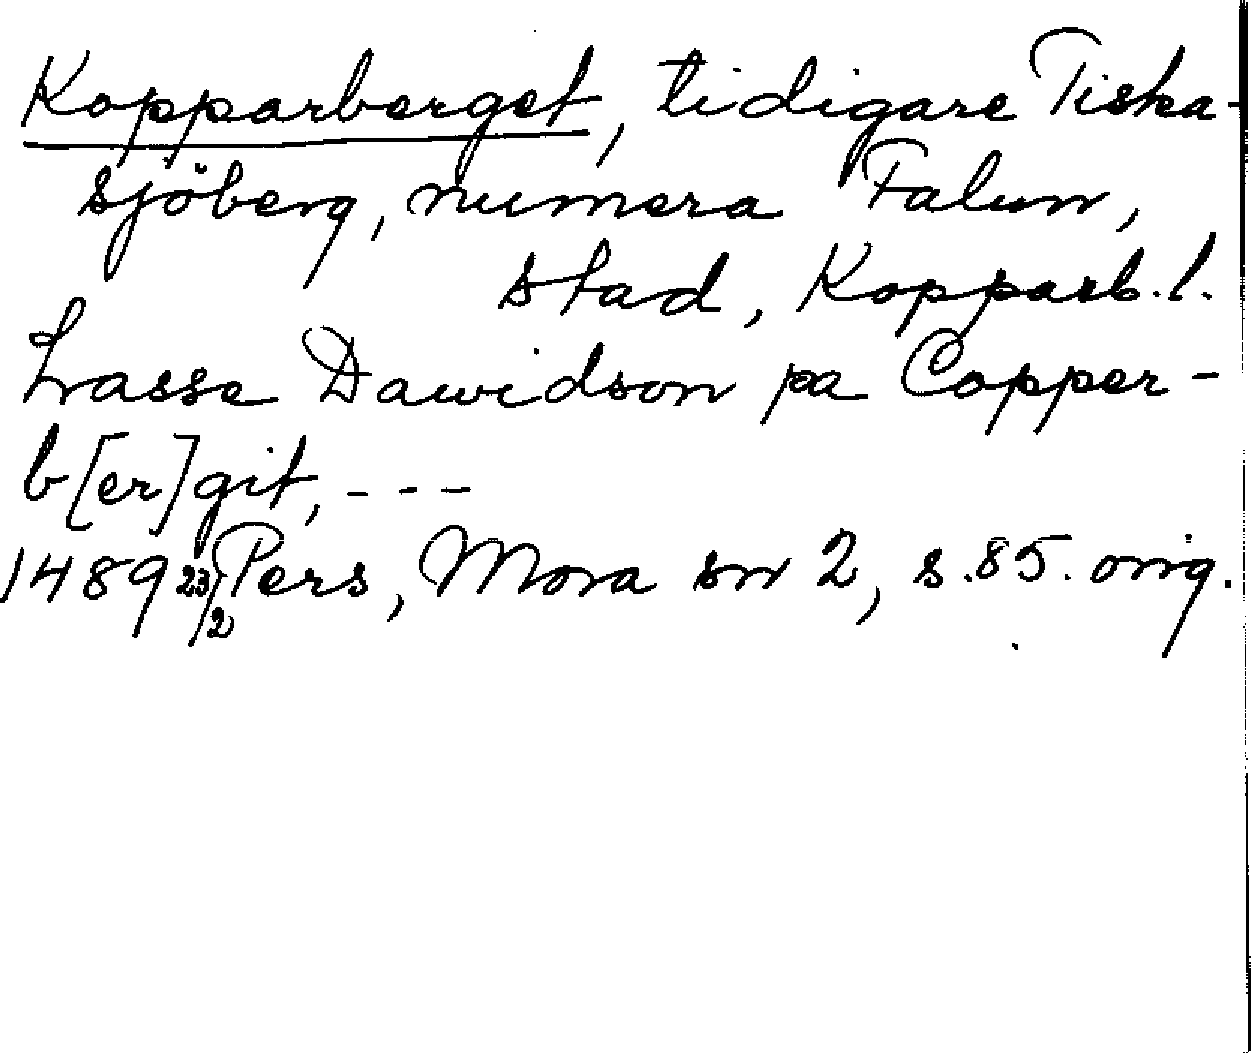 Kopparberget, tidigare Tiska-
sjöberg, numera Falun,
stad, Kopparb.l.
Lrasse Dawidson pa Copper-
b[er]git, ---
1489 23/2 Pers, Mora sn 2, s.85. orig.